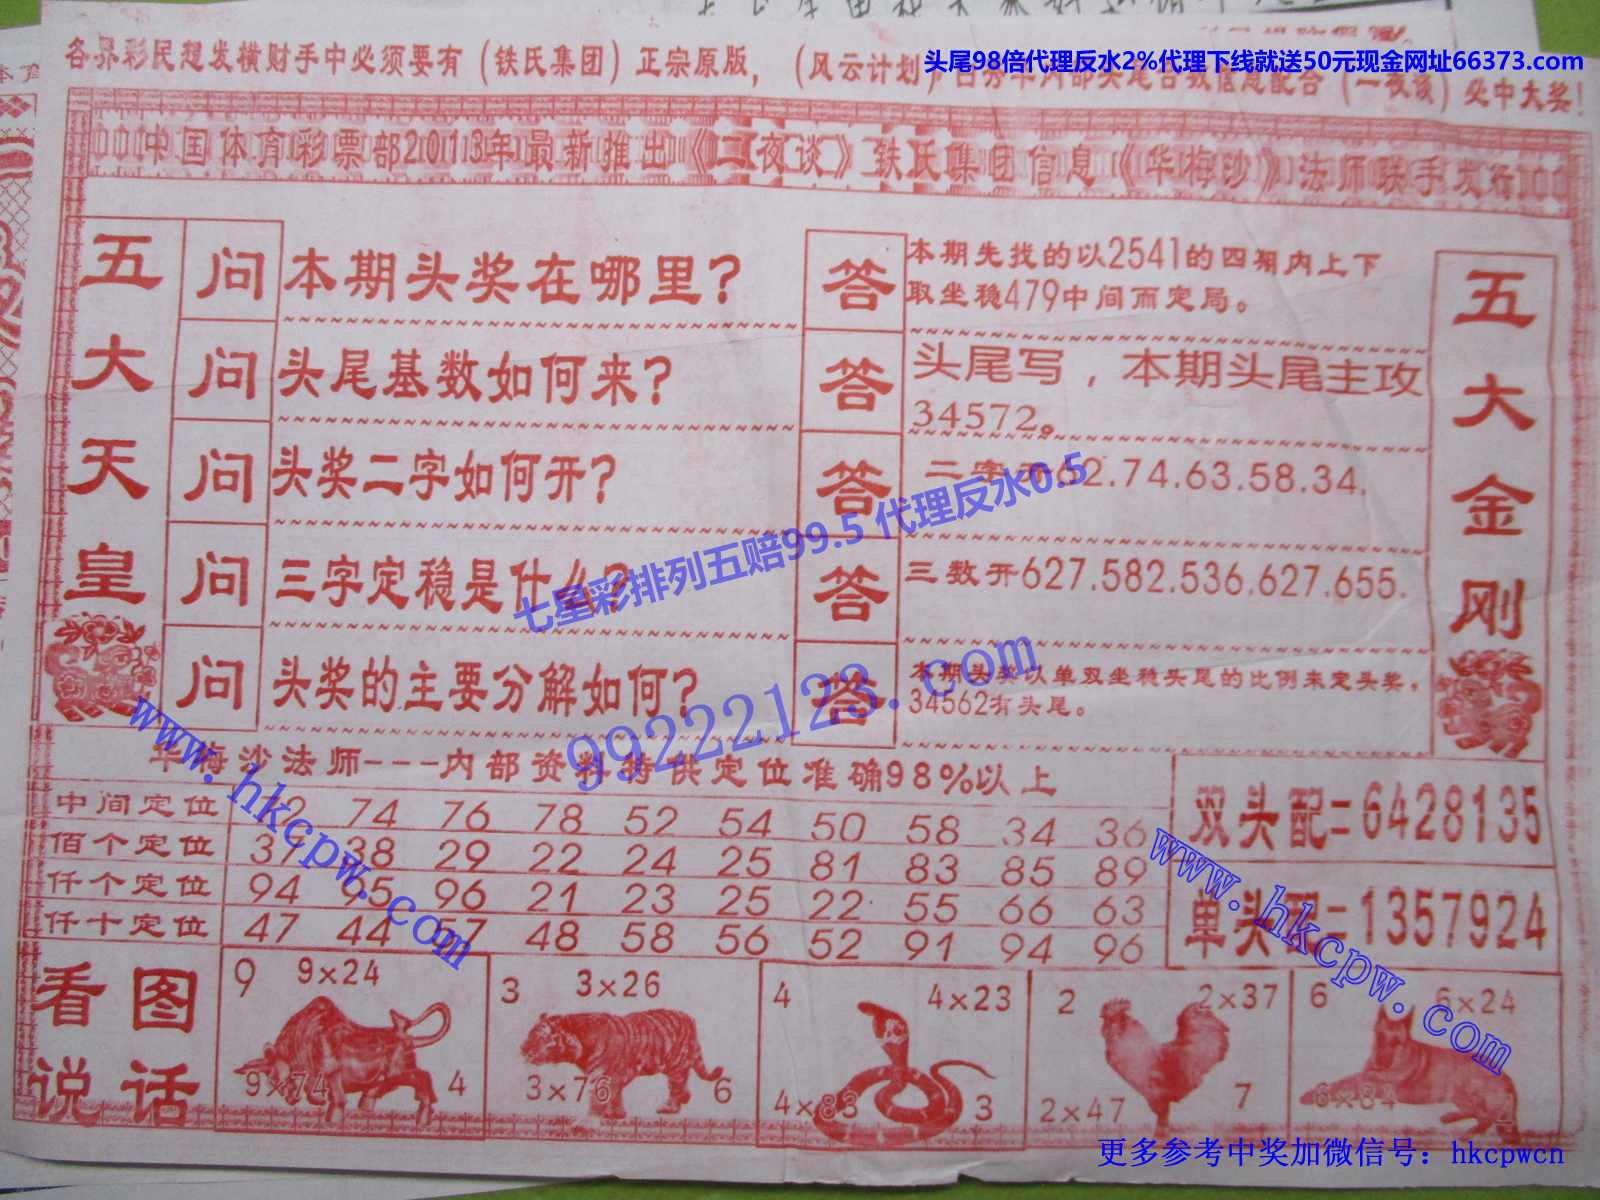 各界彩民想发横财手中必须要有（铁氏集团）正宗原版，（风云计划）
必中大奖！
头尾98倍代理反水2%代理下线就送50元现金网址66373.com
中国体育彩票部2013年最新推出《二夜谈》铁氏集团信息《华梅沙》法师联手发行
五大天皇
问 本期头奖在哪里？
答 本期先找的以2541的四期内上下
取坐稳479中间而定局。
问 头尾基数如何来？
答 头尾写，本期头尾主攻
34572。
问 头奖二字如何开？
答 二字开62.74.63.58.34.
问 三字定稳是什么？
答 三数开627.582.536.627.655.
问 头奖的主要分解如何？
答 本期头奖以单双坐稳头尾的比例来定头奖，
34562有头尾。
五大金刚
七星彩排列五赔99.5 代理反水0.5
99222123.com
www.hkcpw.com
www.hkcpw.com
华梅沙法师---内部资料特供定位准确98%以上
中间定位 74 76 78 52 54 50 58 34 36
佰个定位 37 38 29 22 24 25 81 83 85 89
仟个定位 94 65 96 21 23 25 22 55 66 63
仟十定位 47 44 57 48 58 56 52 91 94 96
双头配=6428135
单头配=1357924
看图
说话
9 9×24
9×74 4
3 3×26
3×76 6
4 4×23
4×83 3
2 2×37
2×47 7
6 6×24
6×84
更多参考中奖加微信号：hkcpwcn